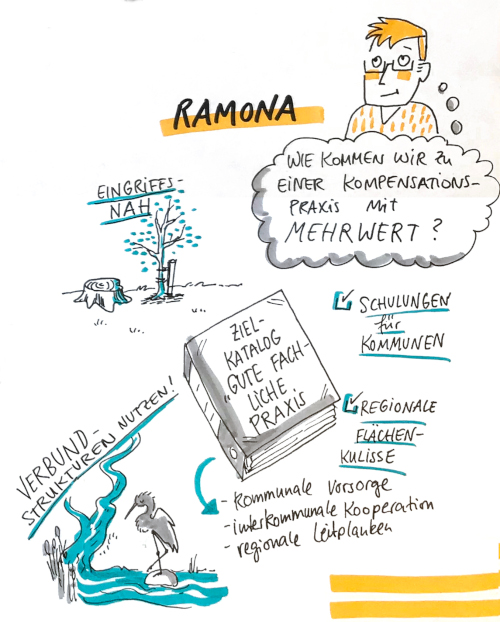 RAMONA
WIE KOMMEN WIR ZU
EINER KOMPENSATIONS-
PRAXIS MIT
MEHRWERT?
EINGRIFFS-
NAH
ZIEL-
KATALOG
"GUTE FACH-
LICHE
PRAXIS
SCHULUNGEN
für
KOMMUNEN
REGIONALE
FLÄCHEN-
KULISSE
VERBUND-
STRUKTUREN NUTZEN!
- kommunale Vorsorge
- interkommunale Kooperation
- regionale Leitplanken